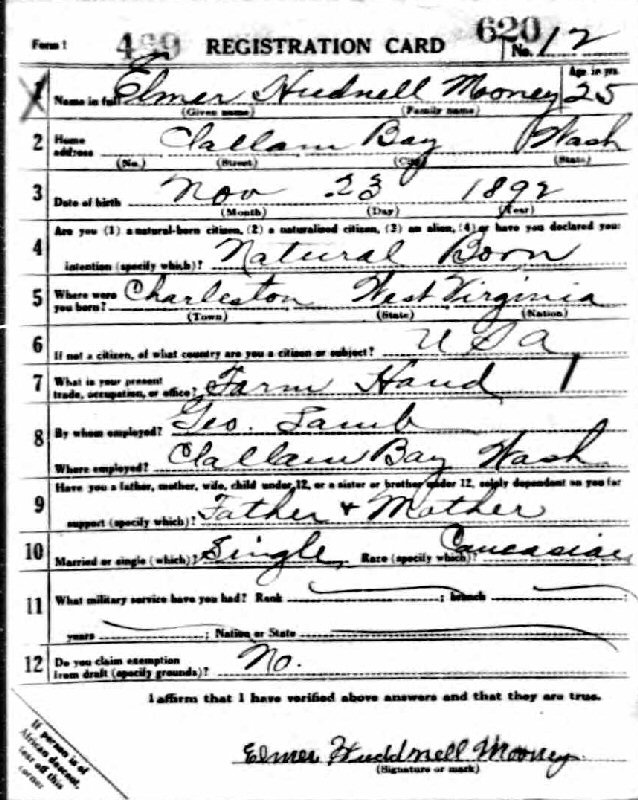 Form 1 469 REGISTRATION CARD 620 No. 12
1 Name in full Elmer Hudnell Mooney Age in yrs 25
(Given name) (Family name)
2 Home address Clallam Bay Wash
(No.) (Street) (City) (State)
3 Date of birth Nov 23 1892
(Month) (Day) (Year)
Are you (1) a natural-born citizen, (2) a naturalized citizen, (3) an alien, (4) or have you declared your
4 intention (specify which)? Natural Born
5 Where were you born? Charleston West Virginia
(Town) (State) (Nation)
6 If not a citizen, of what country are you a citizen or subject? U S A
7 What is your present trade, occupation, or office? Farm Hand 1
8 By whom employed? Geo. Lamb
Where employed? Clallam Bay Wash
Have you a father, mother, wife, child under 12, or a sister or brother under 12, solely dependent on you for
9 support (specify which)? Father + Mother
10 Married or single (which)? Single Race (specify which)? Caucasian
11 What military service have you had? Rank ; branch ;
years ; Nation or State
12 Do you claim exemption from draft (specify grounds)? No.
I affirm that I have verified above answers and that they are true.
If person is of
African descent,
tear off this
corner
Elmer Huddnell Mooney
(Signature or mark)